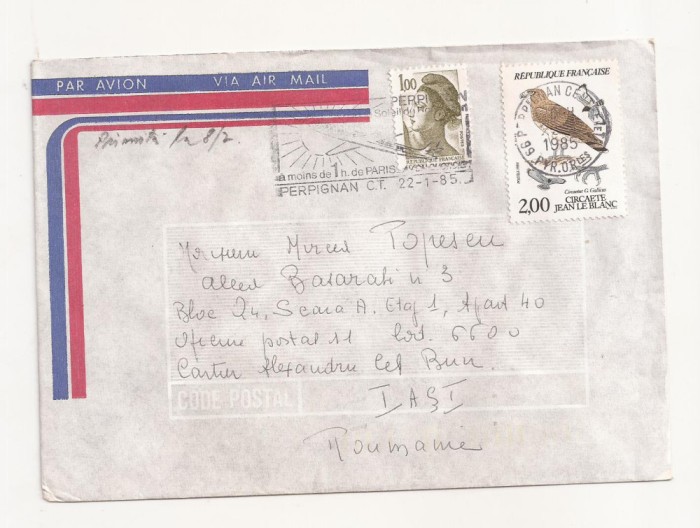 PAR AVION VIA AIR MAIL
RÉPUBLIQUE FRANÇAISE
1,00
PERP
Soleil
PERPIGNAN CENTRE
1985
66 PYR. ORIES
à moins de 1 h. de PARIS
PERPIGNAN C.T. 22-1-85
REPUBLIQUE FRANÇAISE
Circaetus G. Gallicus
2,00 CIRCAETE
JEAN LE BLANC
Primită la 8/2
Monsieur Mircea Popescu
aleea Basarabi n 3
Bloc 24, Scara A, Etaj 1, Apart 40
Oficiul postal 11 Cod. 6600
Cartier Alexandru cel Bun
CODE POSTAL
IAŞI
Roumanie